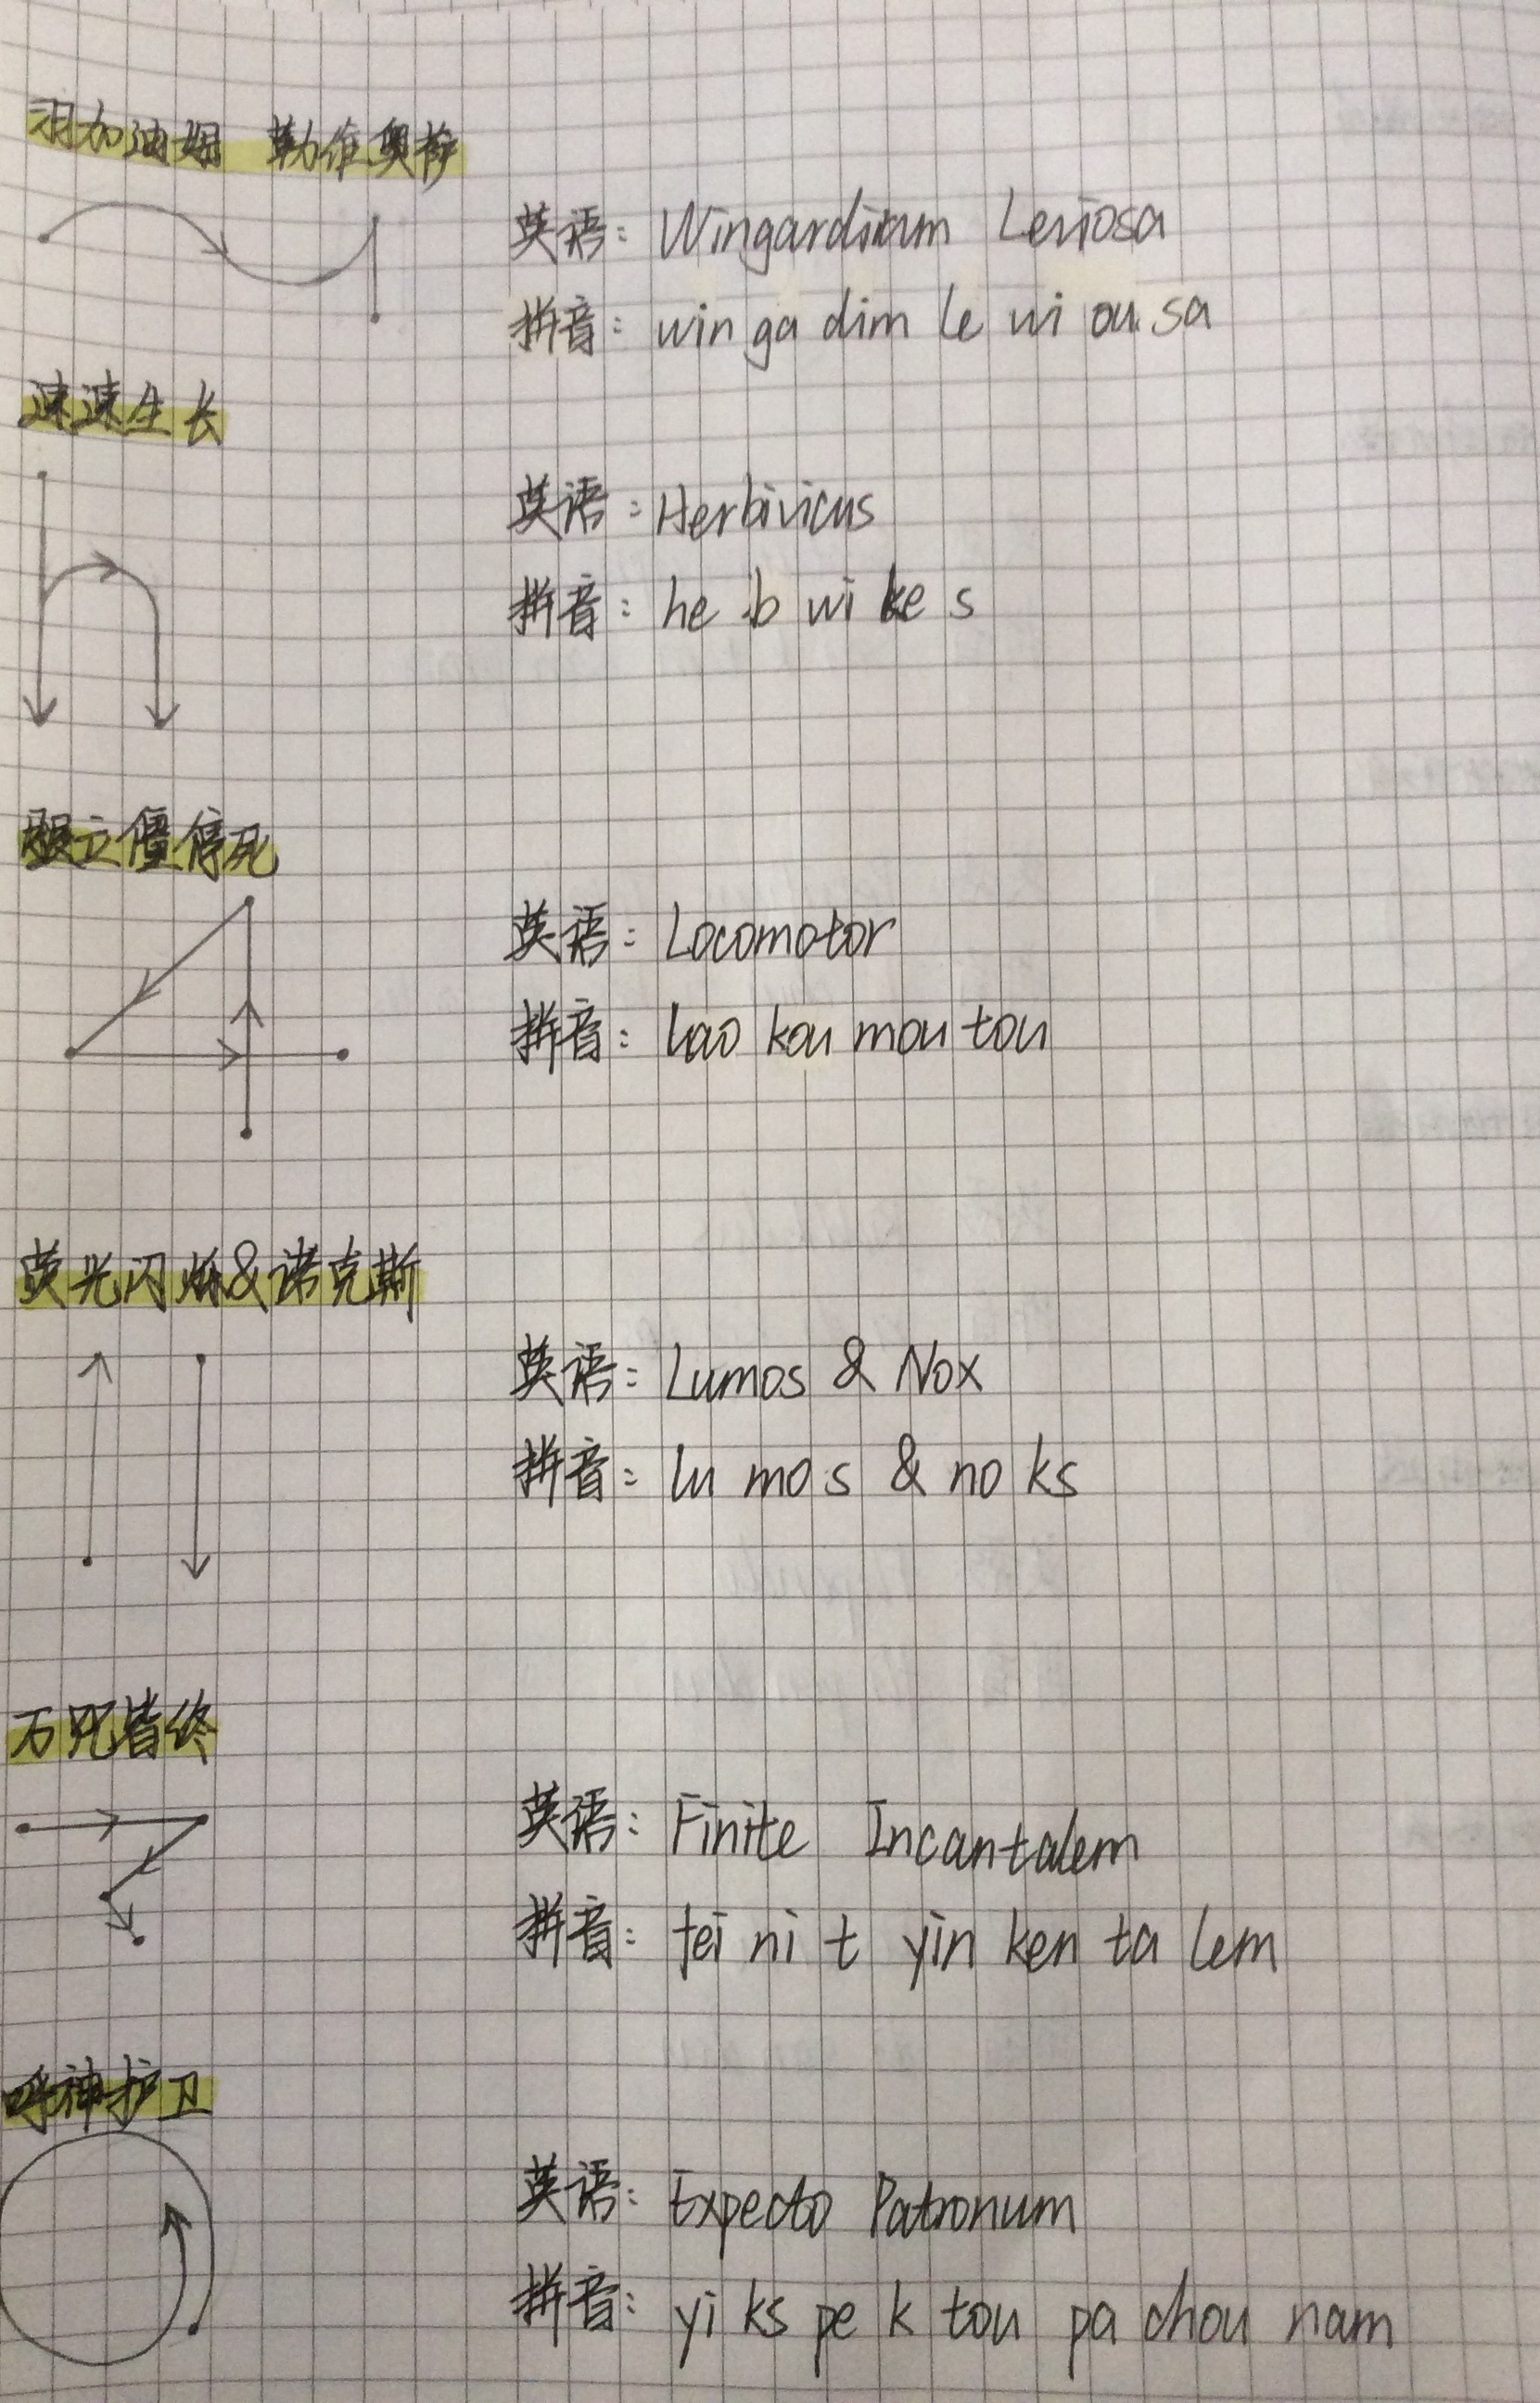 羽加迪姆 勒维奥萨
英语：Wingardium Leviosa
拼音：win ga dim le wi ou sa
速速生长
英语：Herbivicus
拼音：he b wi ke s
腿立僵停死
英语：Locomotor
拼音：lao kou mou tou
荧光闪烁&诺克斯
英语：Lumos & Nox
拼音：lu mo s & no ks
万咒皆终
英语：Finite Incantalem
拼音：fei ni t yin ken ta lem
呼神护卫
英语：Expecto Patronum
拼音：yi ks pe k tou pa chou nam